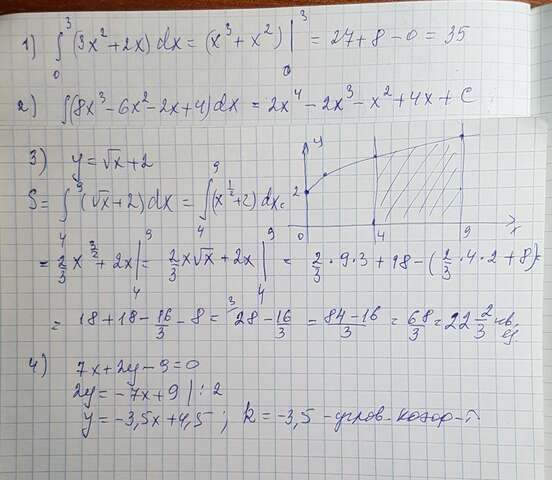 1) ∫₀³ (3x² + 2x) dx = (x³ + x²) |₀³ = 27 + 8 - 0 = 35
2) ∫(8x³ - 6x² - 2x + 4) dx = 2x⁴ - 2x³ - x² + 4x + C
3) y = √x + 2
S = ∫₄⁹ (√x + 2) dx = ∫₄⁹ (x^½ + 2) dx =
y
2
0 4 9 x
= 2/3 x^(3/2) + 2x |₄⁹ = 2/3 x√x + 2x |₄⁹ = 2/3 · 9 · 3 + 18 - (2/3 · 4 · 2 + 8) =
= 18 + 18 - 16/3 - 8 = ³ 28 - 16/3 = 84 - 16/3 = 68/3 = 22 2/3 кв. ед.
4) 7x + 2y - 9 = 0
2y = -7x + 9 | : 2
y = -3,5x + 4,5 ; k = -3,5 - углов.